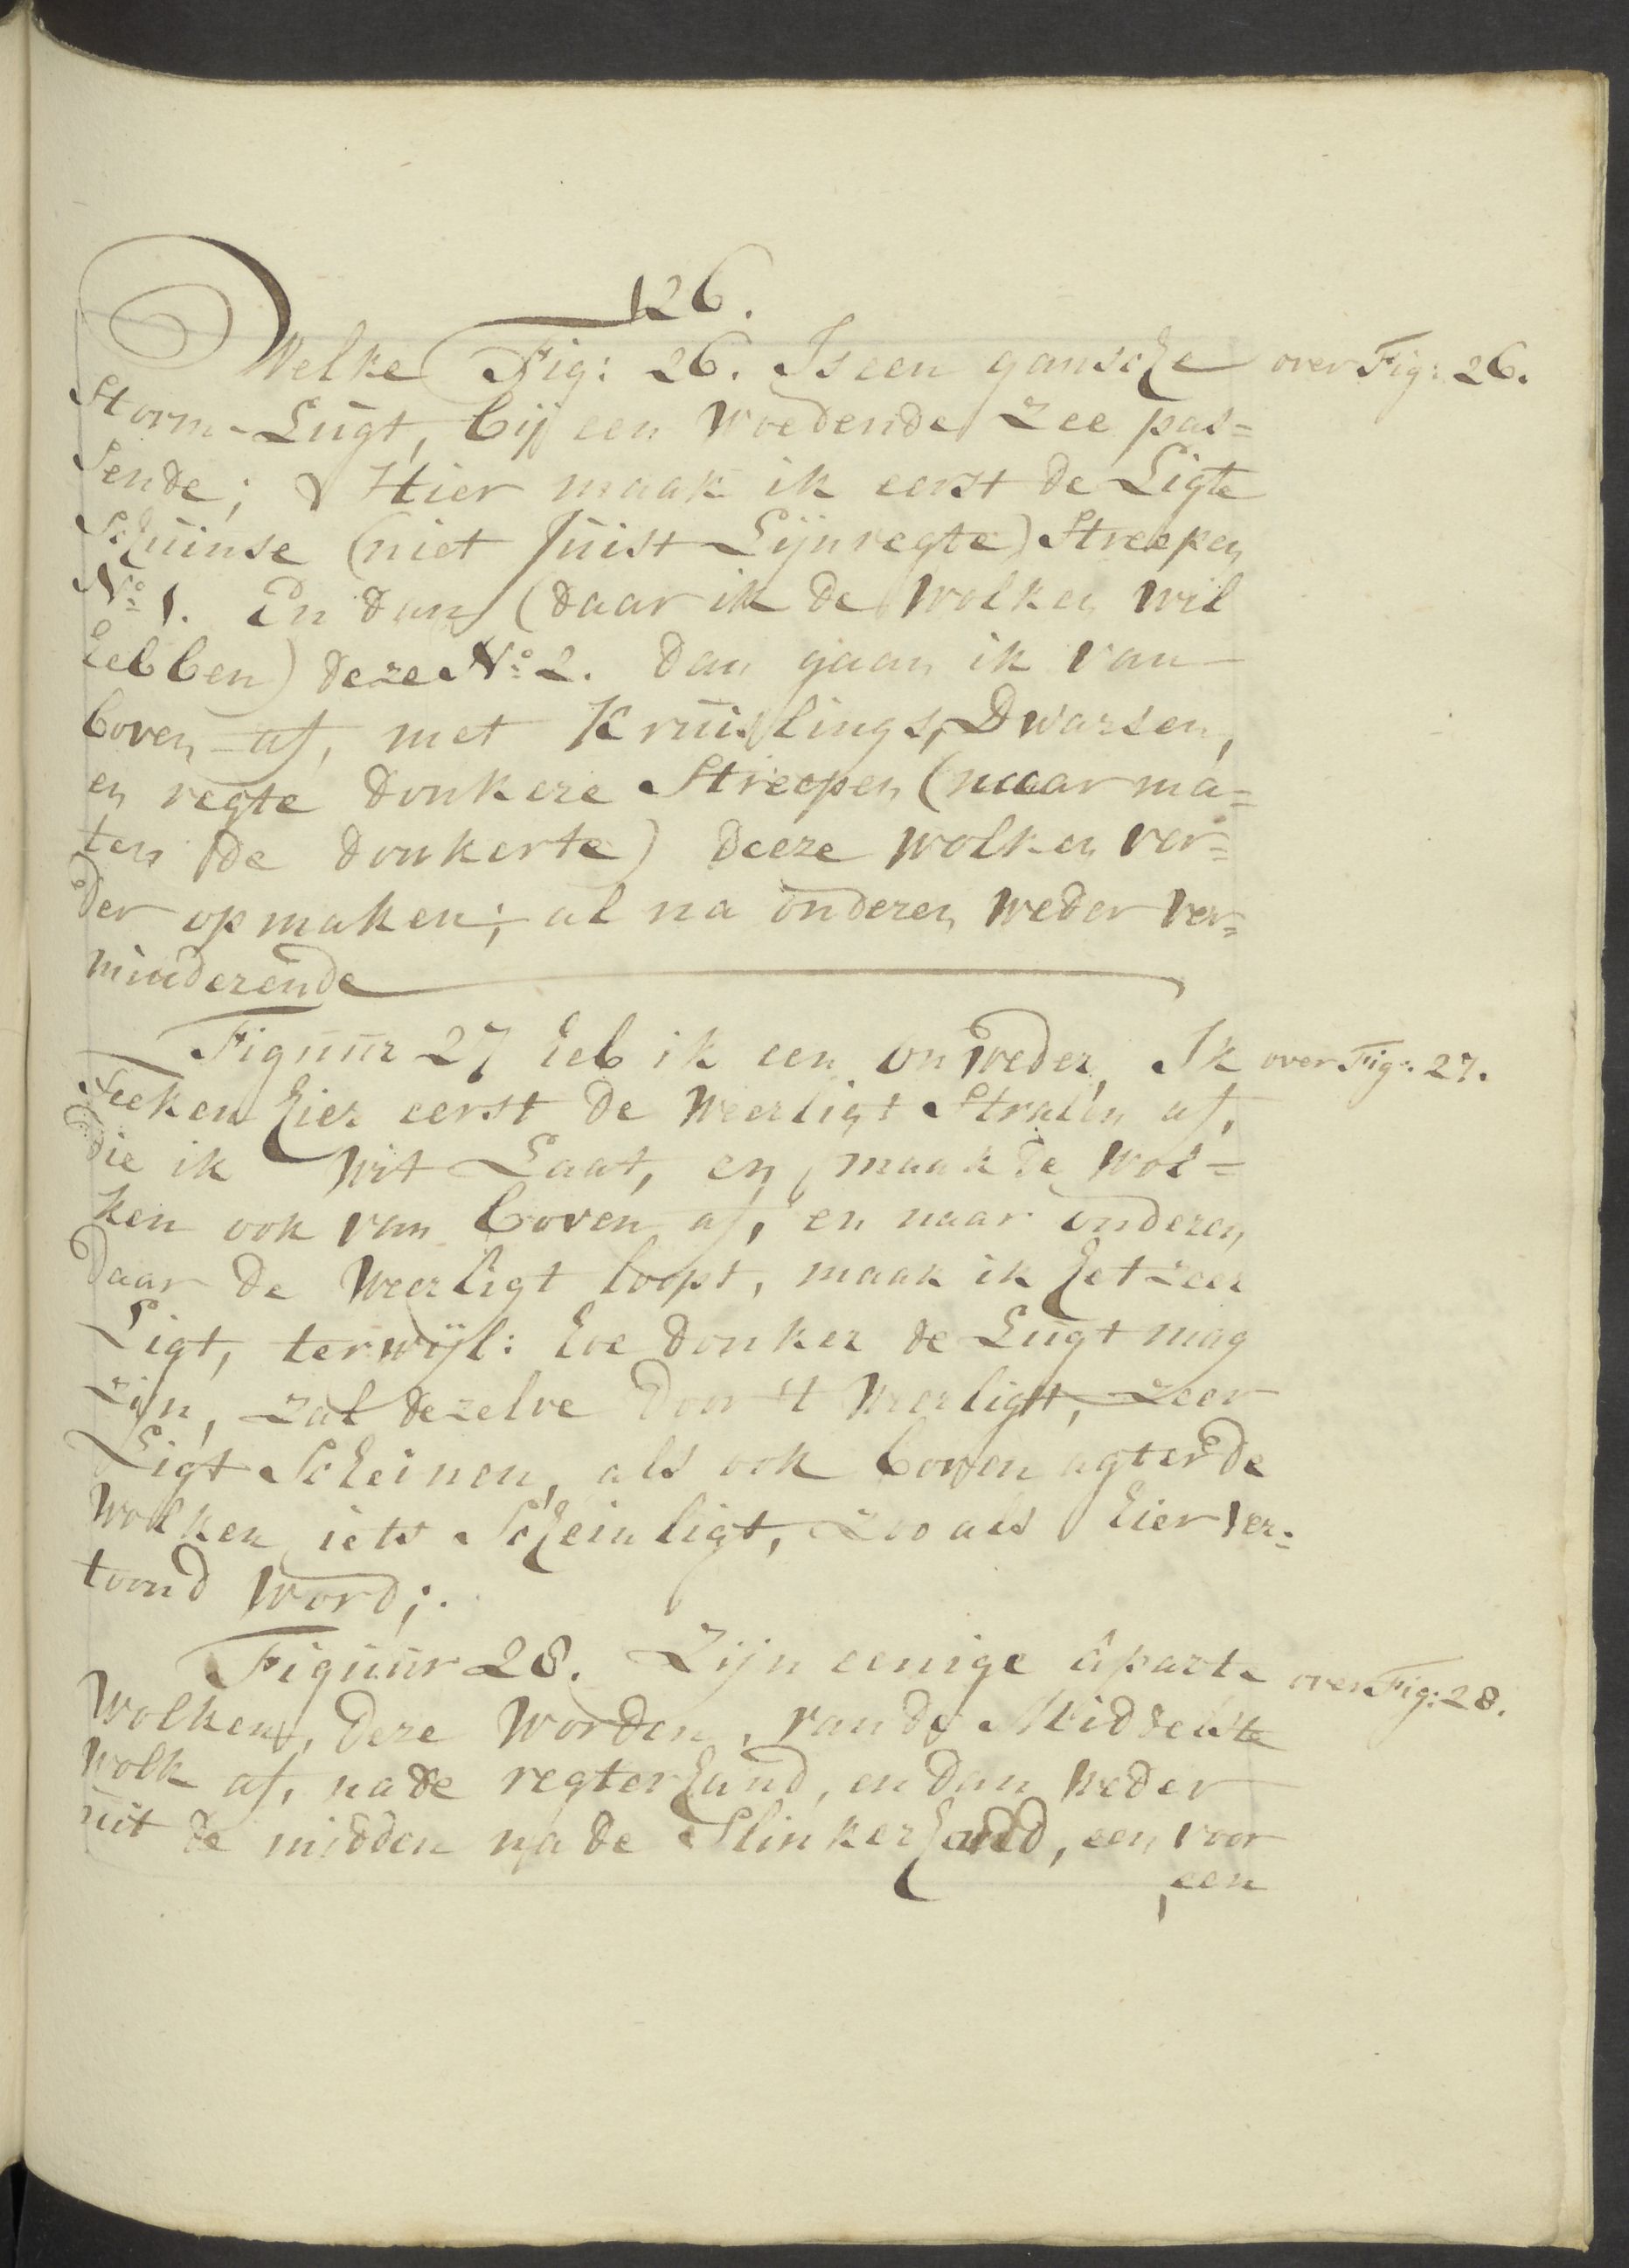 126.
Welke Fig: 26. Is een gansche
over Fig: 26.
Storm-Lugt, bij een woedende zee pas=
sende; Hier maak ik eerst de Ligte
Schuinse (niet Juist Lijnregte) Streepen
No: 1. En dan (daar ik de wolken wil
hebben) deze No: 2. dan gaan ik van
boven af, met Kruislings, Dwarsen,
en regte donkere Streepen (naar ma=
ten de donkerte) deeze wolken ver=
der opmaken; al na onderen weder ver=
minderende
Figuur 27 heb ik een onweder, Ik
over Fig: 27.
Teeken hier eerst de weerligt Stralen af,
die ik wit Laat, en maak de wol=
ken ook van boven af, en naar onderen
daar de weerligt loopt, maak ik het zeer
Ligt, terwijl: hoe donker de Lugt mag
zijn, zal dezelve door 't weerligt, zeer
Ligt Scheinen, als ook boven agter de
wolken iets Schein ligt, zoo als hier ver=
toond word;.
Figuur 28. Zijn eenige aparte
over Fig: 28.
wolken, deze worden, van de Middelste
wolk af, na de regterhand, en dan weder
uit de midden na de Slinkerhand, een voor
een